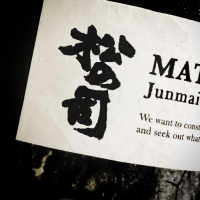 松の司
MAT
Junmai
We want to const
and seek out what